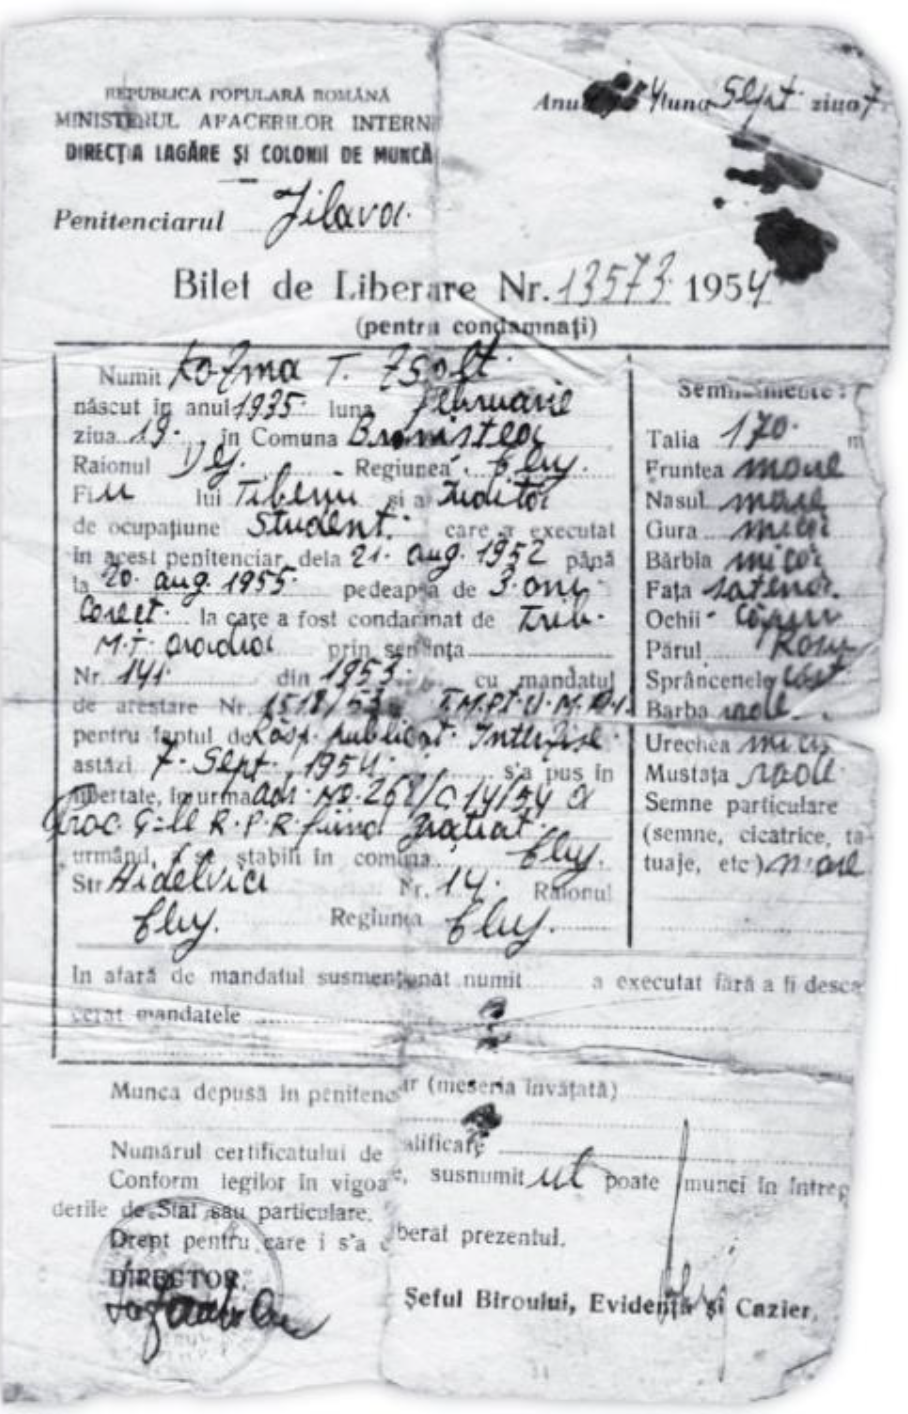 REPUBLICA POPULARĂ ROMÂNĂ
MINISTERUL AFACERILOR INTERN
DIRECȚIA LAGĂRE ȘI COLONII DE MUNCĂ
Anu 4 luna Sept. ziua 7
Penitenciarul Jilava.
Bilet de Liberare Nr. 13573. 1954
(pentru condamnați)
Numit Kozma T. Zsolt.
născut în anul 1935 luna februarie
ziua 13. în Comuna
Raionul Dej. Regiunea Cluj.
Fiu lui Tiberiu și a Iuditei
de ocupațiune Student. care a executat
în acest penitenciar dela 21. aug. 1952 până
la 20. aug. 1955. pedeapsa de 3. ani
Corect. la care a fost condamnat de Trib.
M.T. Oradia prin sentința
Nr. 141. din 1953. cu mandatul
de arestare Nr. 1518/53
pentru faptul de Răsp. publicat. Interzise.
astăzi 7. Sept. 1954. s'a pus în
libertate, în urma adr. No. 268/C 14/54 a
Proc. G-le R.P.R. fiind grațiat.
urmând, a se stabili în comuna Cluj.
Str. Nr. 14. Raionul
Cluj. Regiunea Cluj.
Semnalmente:
Talia 170. m
Fruntea mare
Nasul mare
Gura mică
Bărbia mică
Fața
Ochii căprui
Părul
Sprâncenele cast
Barba rade.
Urechea mici
Mustața rade.
Semne particulare
(semne, cicatrice, ta-
tuaje, etc)
In afară de mandatul susmenționat numit a executat fără a fi desca
cerat mandatele
Munca depusă în penitenc ar (meseria învățată)
Numărul certificatului de alificare
Conform legilor în vigoa e, susnumitul poate munci în întrep
derile de Stat sau particulare.
Drept pentru care i s'a berat prezentul.
DIRECTOR,
Șeful Biroului, Evidență și Cazier,